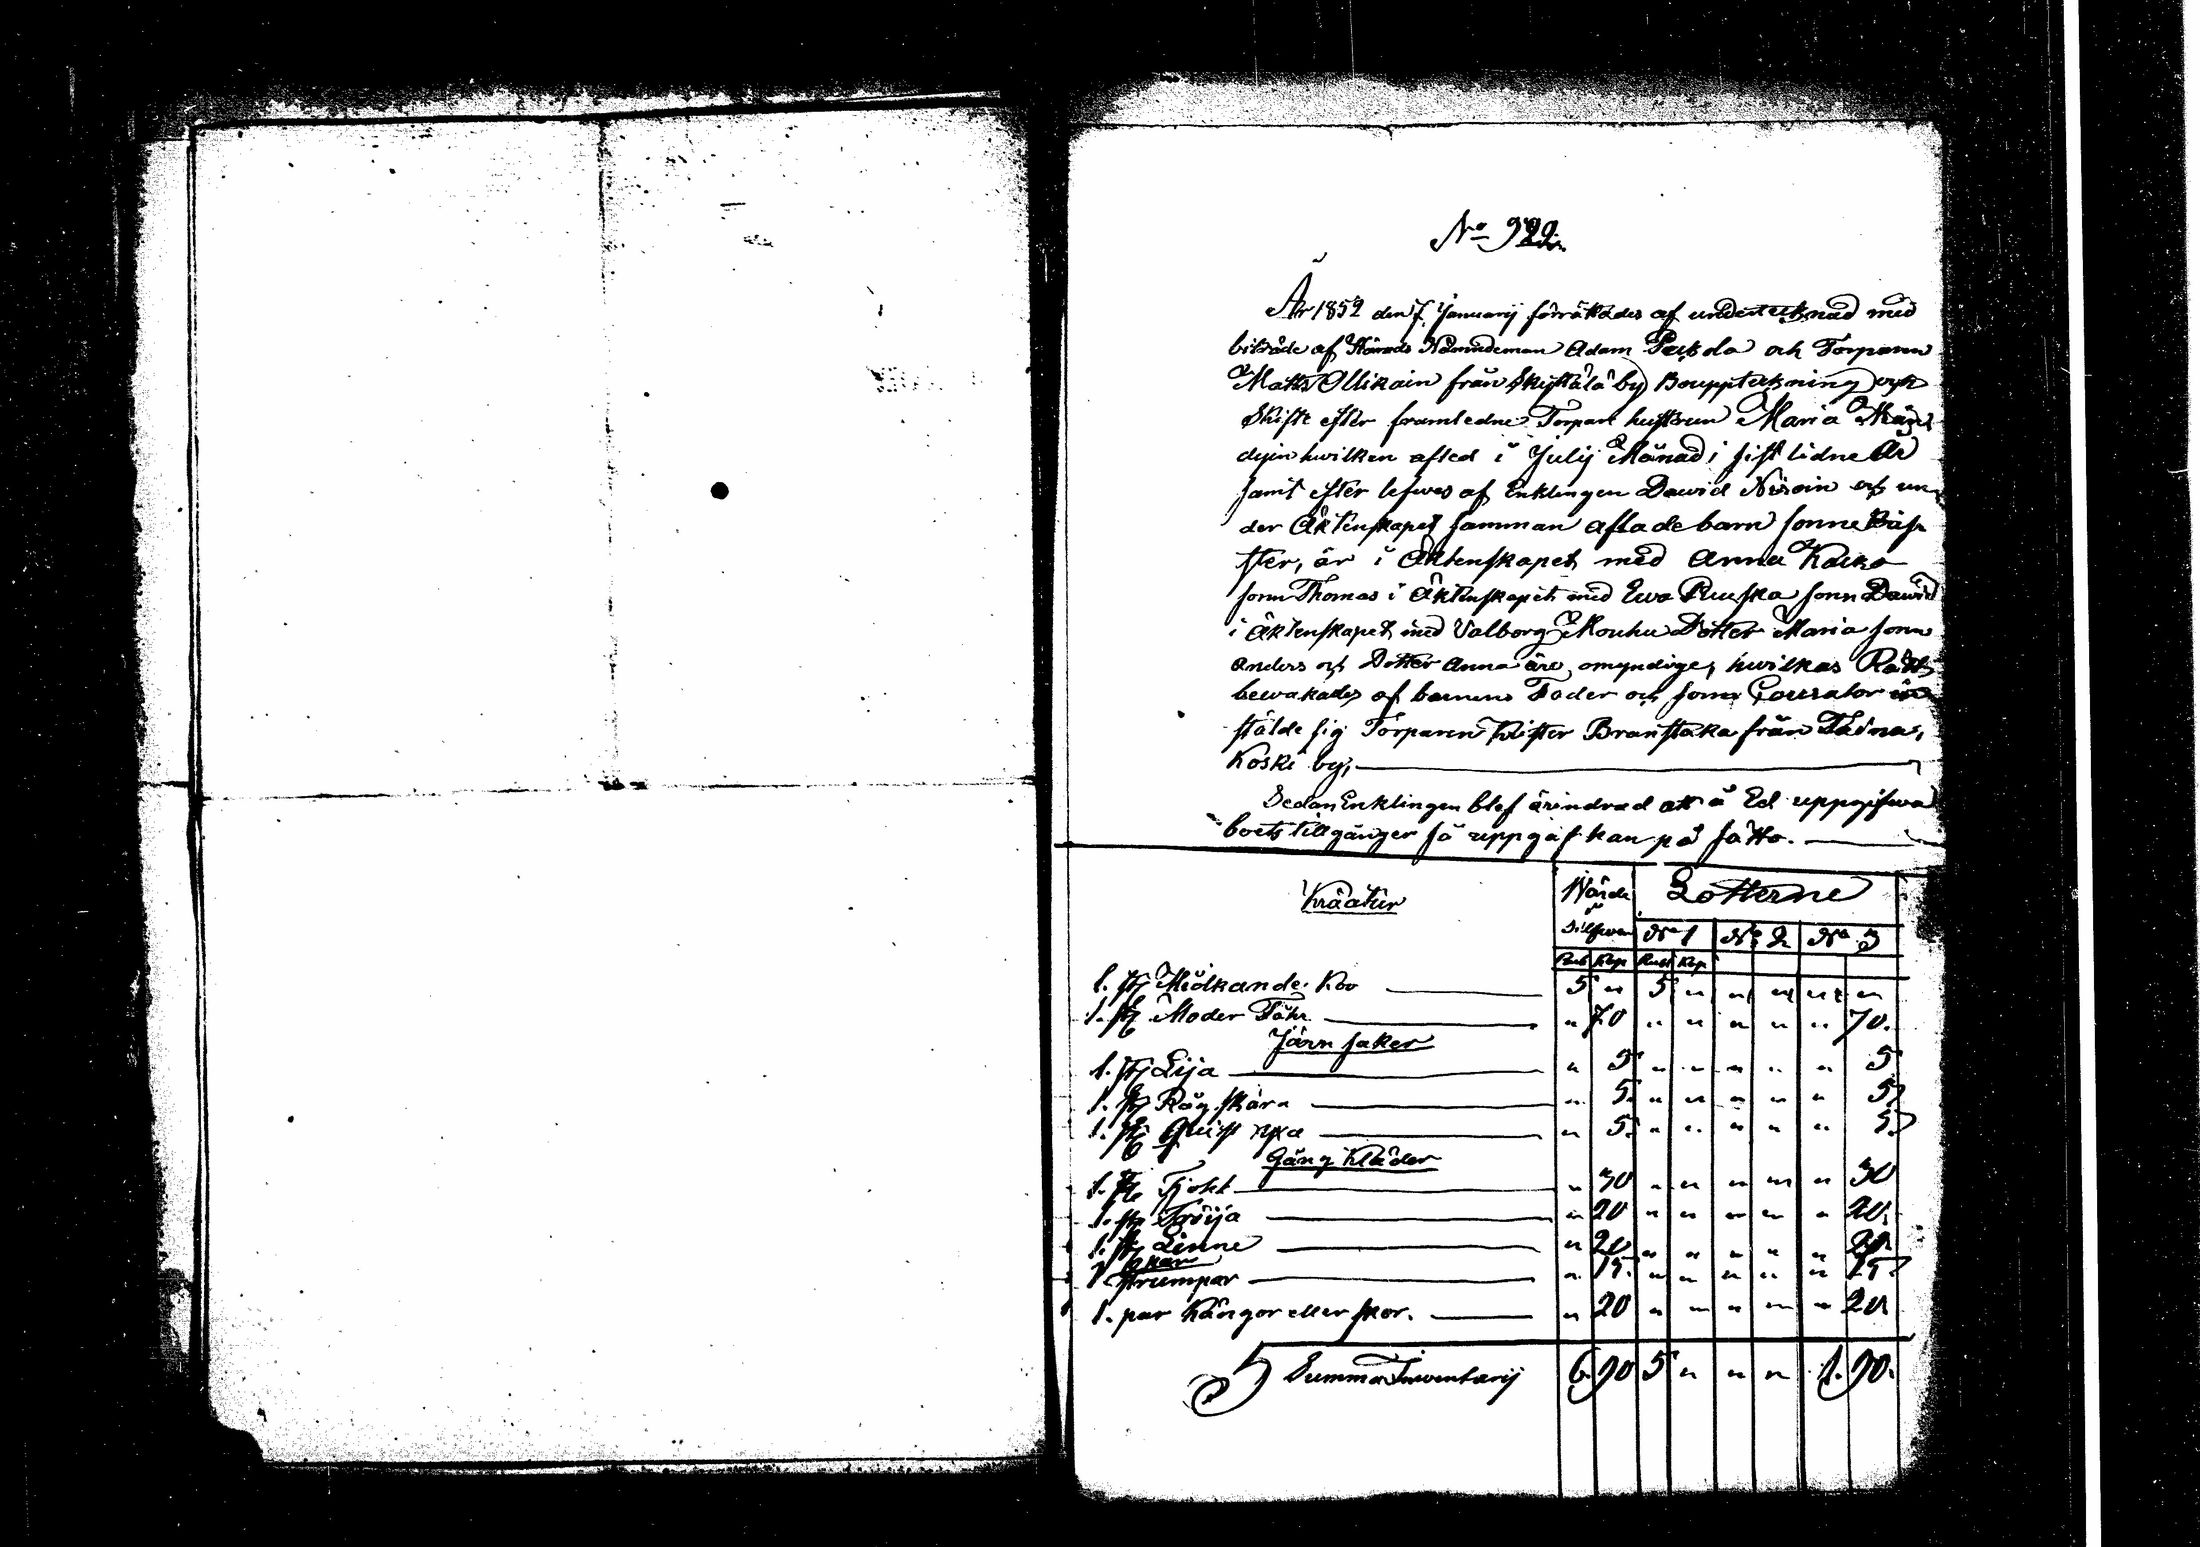 No 922.
År 1852 den 7. Januarij förrätades af undertecknad med
biträde af Härads Nämndeman Adam Peckola och Torparen
Matts Ollikain från Skyttälä by Boupptekning och
Skifte efter framledne Torpare hustrun Maria
dyin hvilken afled i Julij Månad i sist lidne År
samt efter lefwes af Enklingen Dawid och un
der Äktenskapet samman aflade barn sonne
ster, är i Äktenskapet med Anna
sonn Thomas i Äktenskapet med Ewa Ruuska sonn Dawid
i Äktenskapet med Valborg Mouhu Dotter Maria sonn
Anders och Dotter Anna äro omyndige, hwilkas Rätt
bewakades af barnens Fader och som
stälde sig Torparen Krister Branstaka från Taina,
Koski by,
Sedan Enklingen blef ärindrad att å Ed uppgifwa
boets tillgånger så uppgaf han på sätto.
Kräatur Wärde i Silfwer Lotterne
No 1 No 2 No 3
Rub Kop Rub Kop
1. st Miölkande Koo 5 " 5 " " " " "
1. st Moder Fåhr " 70 " " " " " 70.
Järn saker
1. st Lija " 5 " " " " " 5
1. st Råg skära " 5. " " " " " 5
1. st Quist yxa " 5. " " " " " 5.
Gång Kläder
1. st Tjokt " 30 " " " " " 30
1. st Tröija " 20 " " " " " 20.
1. st Linne " 20 " " " " " 20.
1 par
strumpor " 15. " " " " " 15.
1. par Kängor eller skor. " 20 " " " " " 20
Summa Inventarij 6. 90 5 " " " 1. 90.